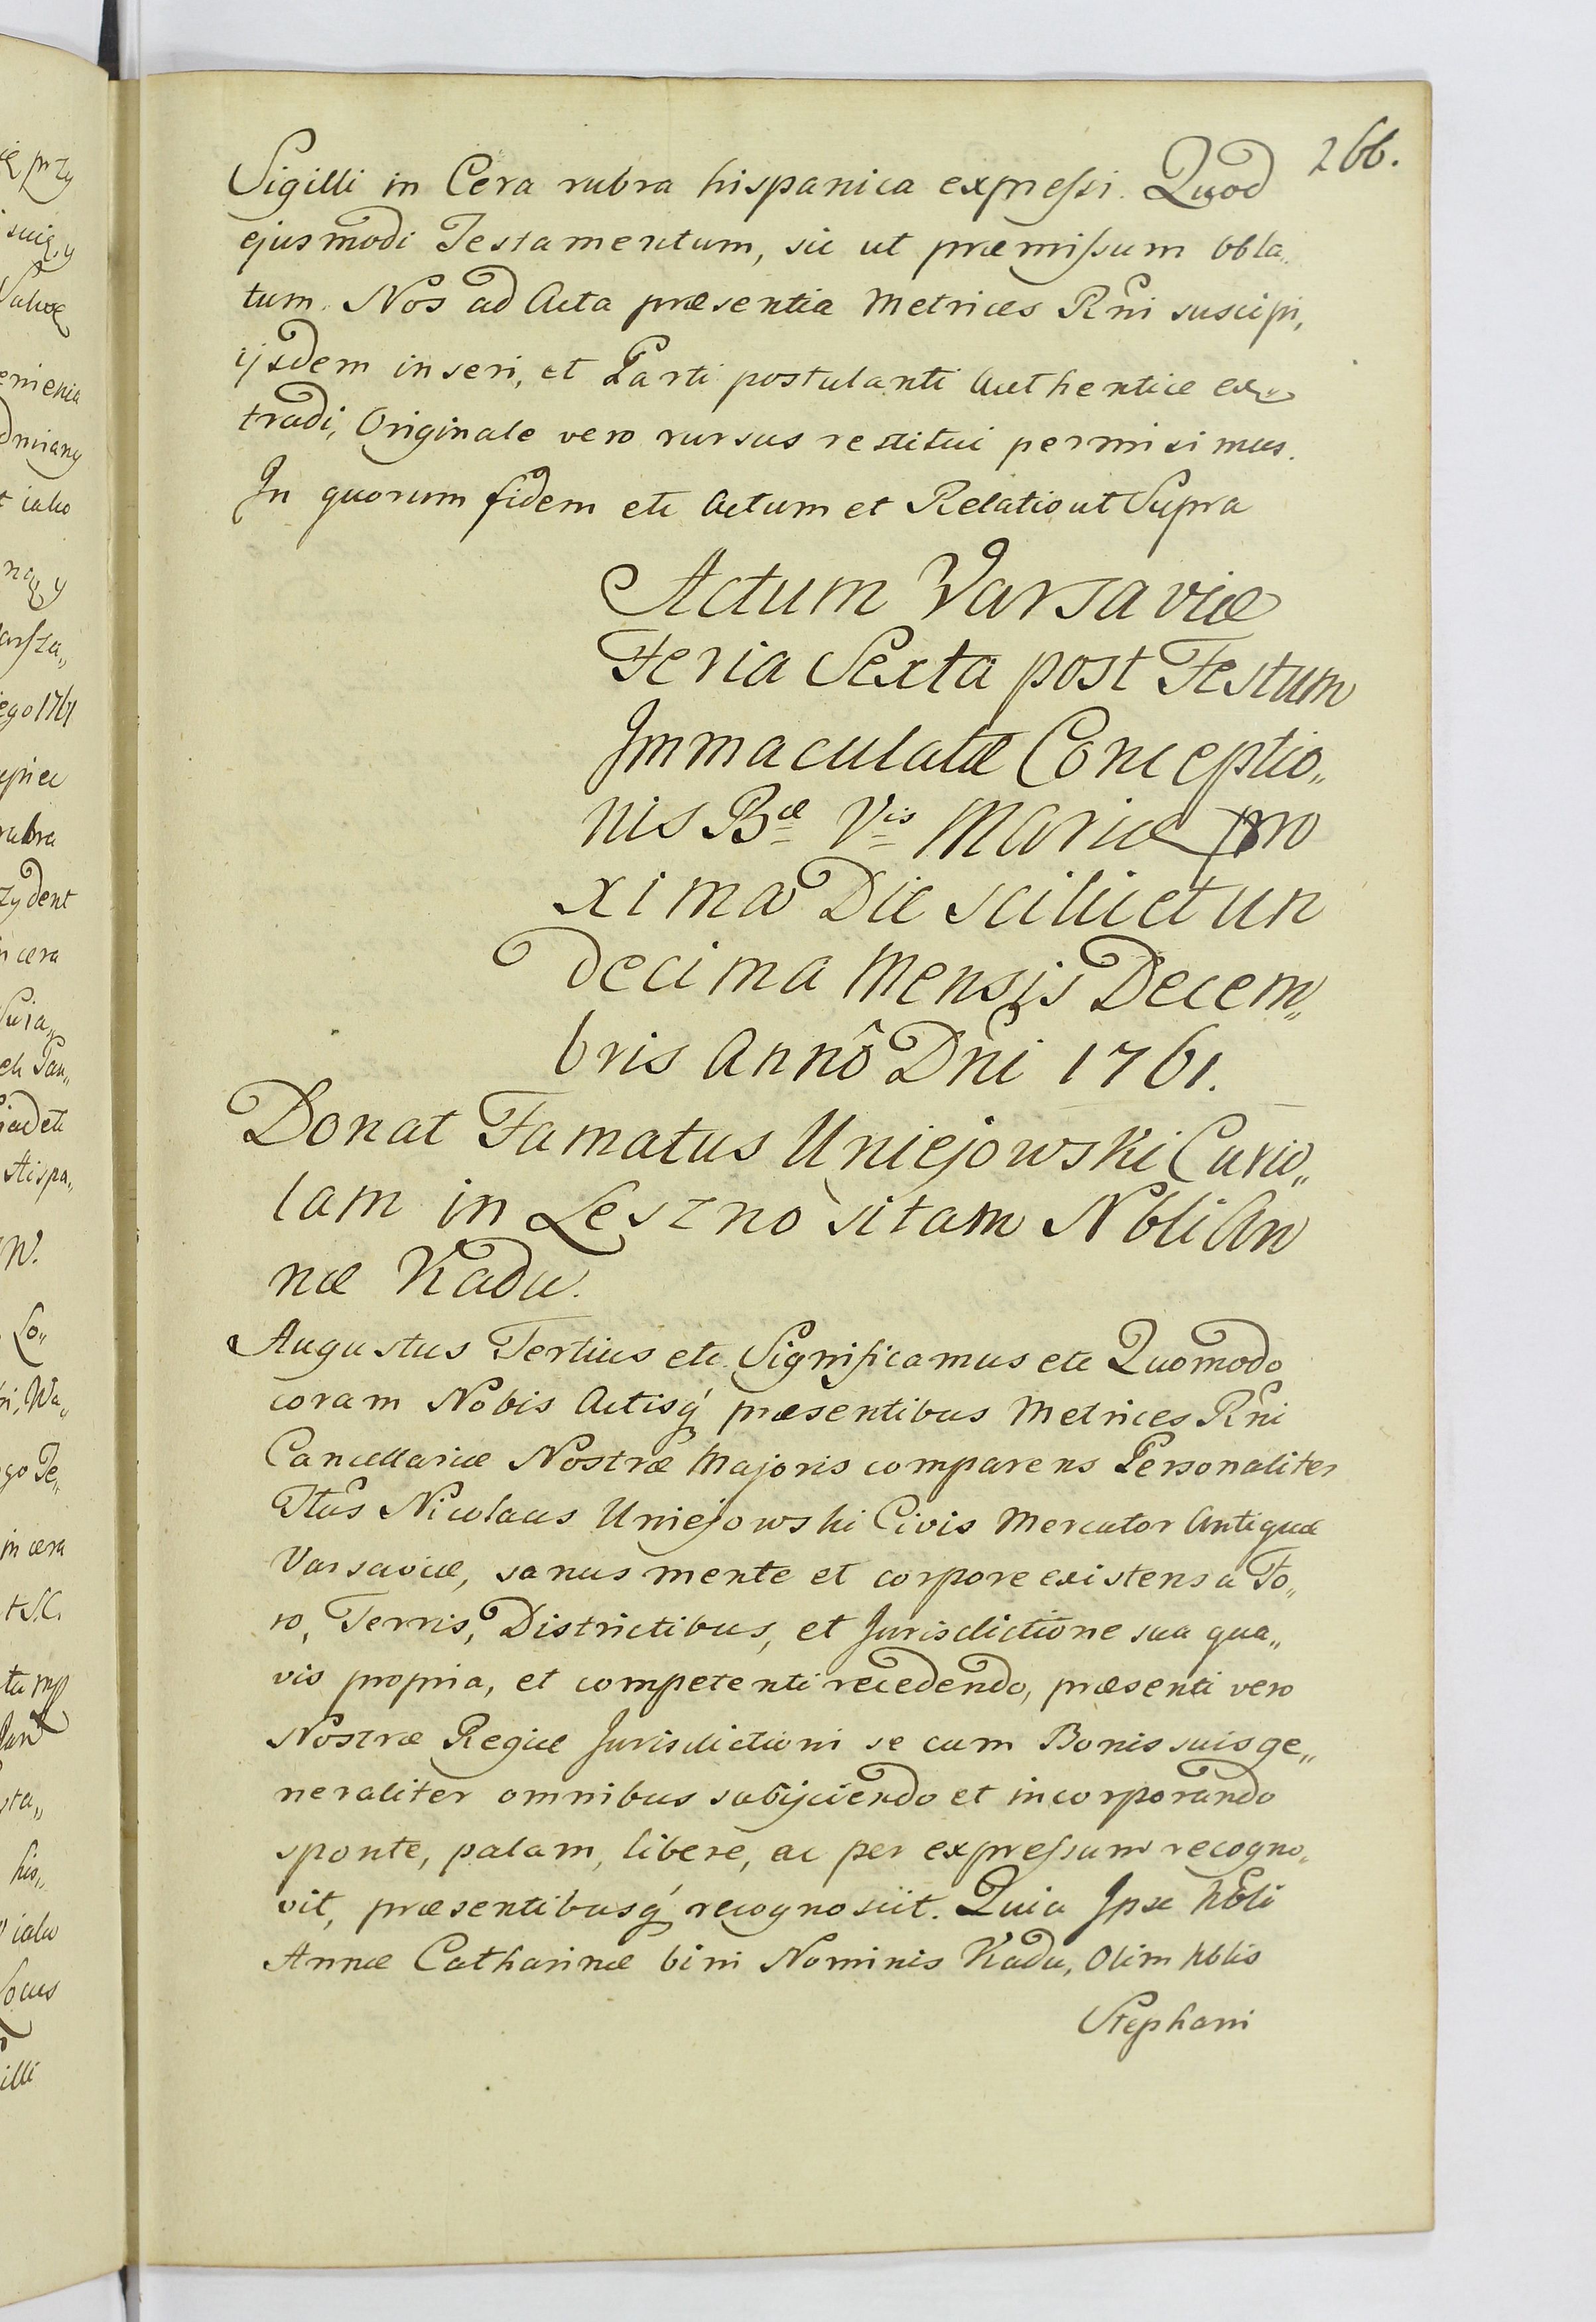 266.
Sigilli in Cera rubra hispanica expreſsi. Quod
ejusmodi Testamentum, sic ut præmiſsum obla„
tum. Nos ad Acta præsentia Metrices Rñi suscipi,
ijsdem inseri, et Parti postulanti Authentice ex„
tradi, Originale vero rursus restitui permisimus.
In quorum fidem etc Actum et Relatio ut Supra
Actum Varsaviæ
Feria Sexta post Festum
Immaculatæ Conceptio„
nis Bæ Vis Mariæ pro
xima Die scilicet un
decima Mensis Decem„
bris Annô Dñi 1761.
Donat Famatus Uniejowski Curio„
lam in Leszno sitam Nbli An
næ Kadu.
Augustus Tertius etc. Significamus etc Quomodo
coram Nobis Actisq́ præsentibus Metrices Rñi
Cancellariæ Nostræ Majoris comparens Personaliter
Ftus Nicolaus Uniejowski Civis Mercator Antiquæ
Varsaviæ, sanus mente et corpore existens a Fo„
ro, Terris, Districtibus, et Jurisdictione sua qua„
vis propria, et competenti recedendo, præsenti vero
Nostræ Regiæ Jurisdictioni se cum Bonis suis ge„
neraliter omnibus subijciendo et incorporando
sponte, palam, libere, ac per expreſsum recogno„
vit, præsentibusq́ recognoscit. Quia Ipse Nbli
Annæ Catharinæ bini Nominis Kadu, Olim Nblis
Stephani